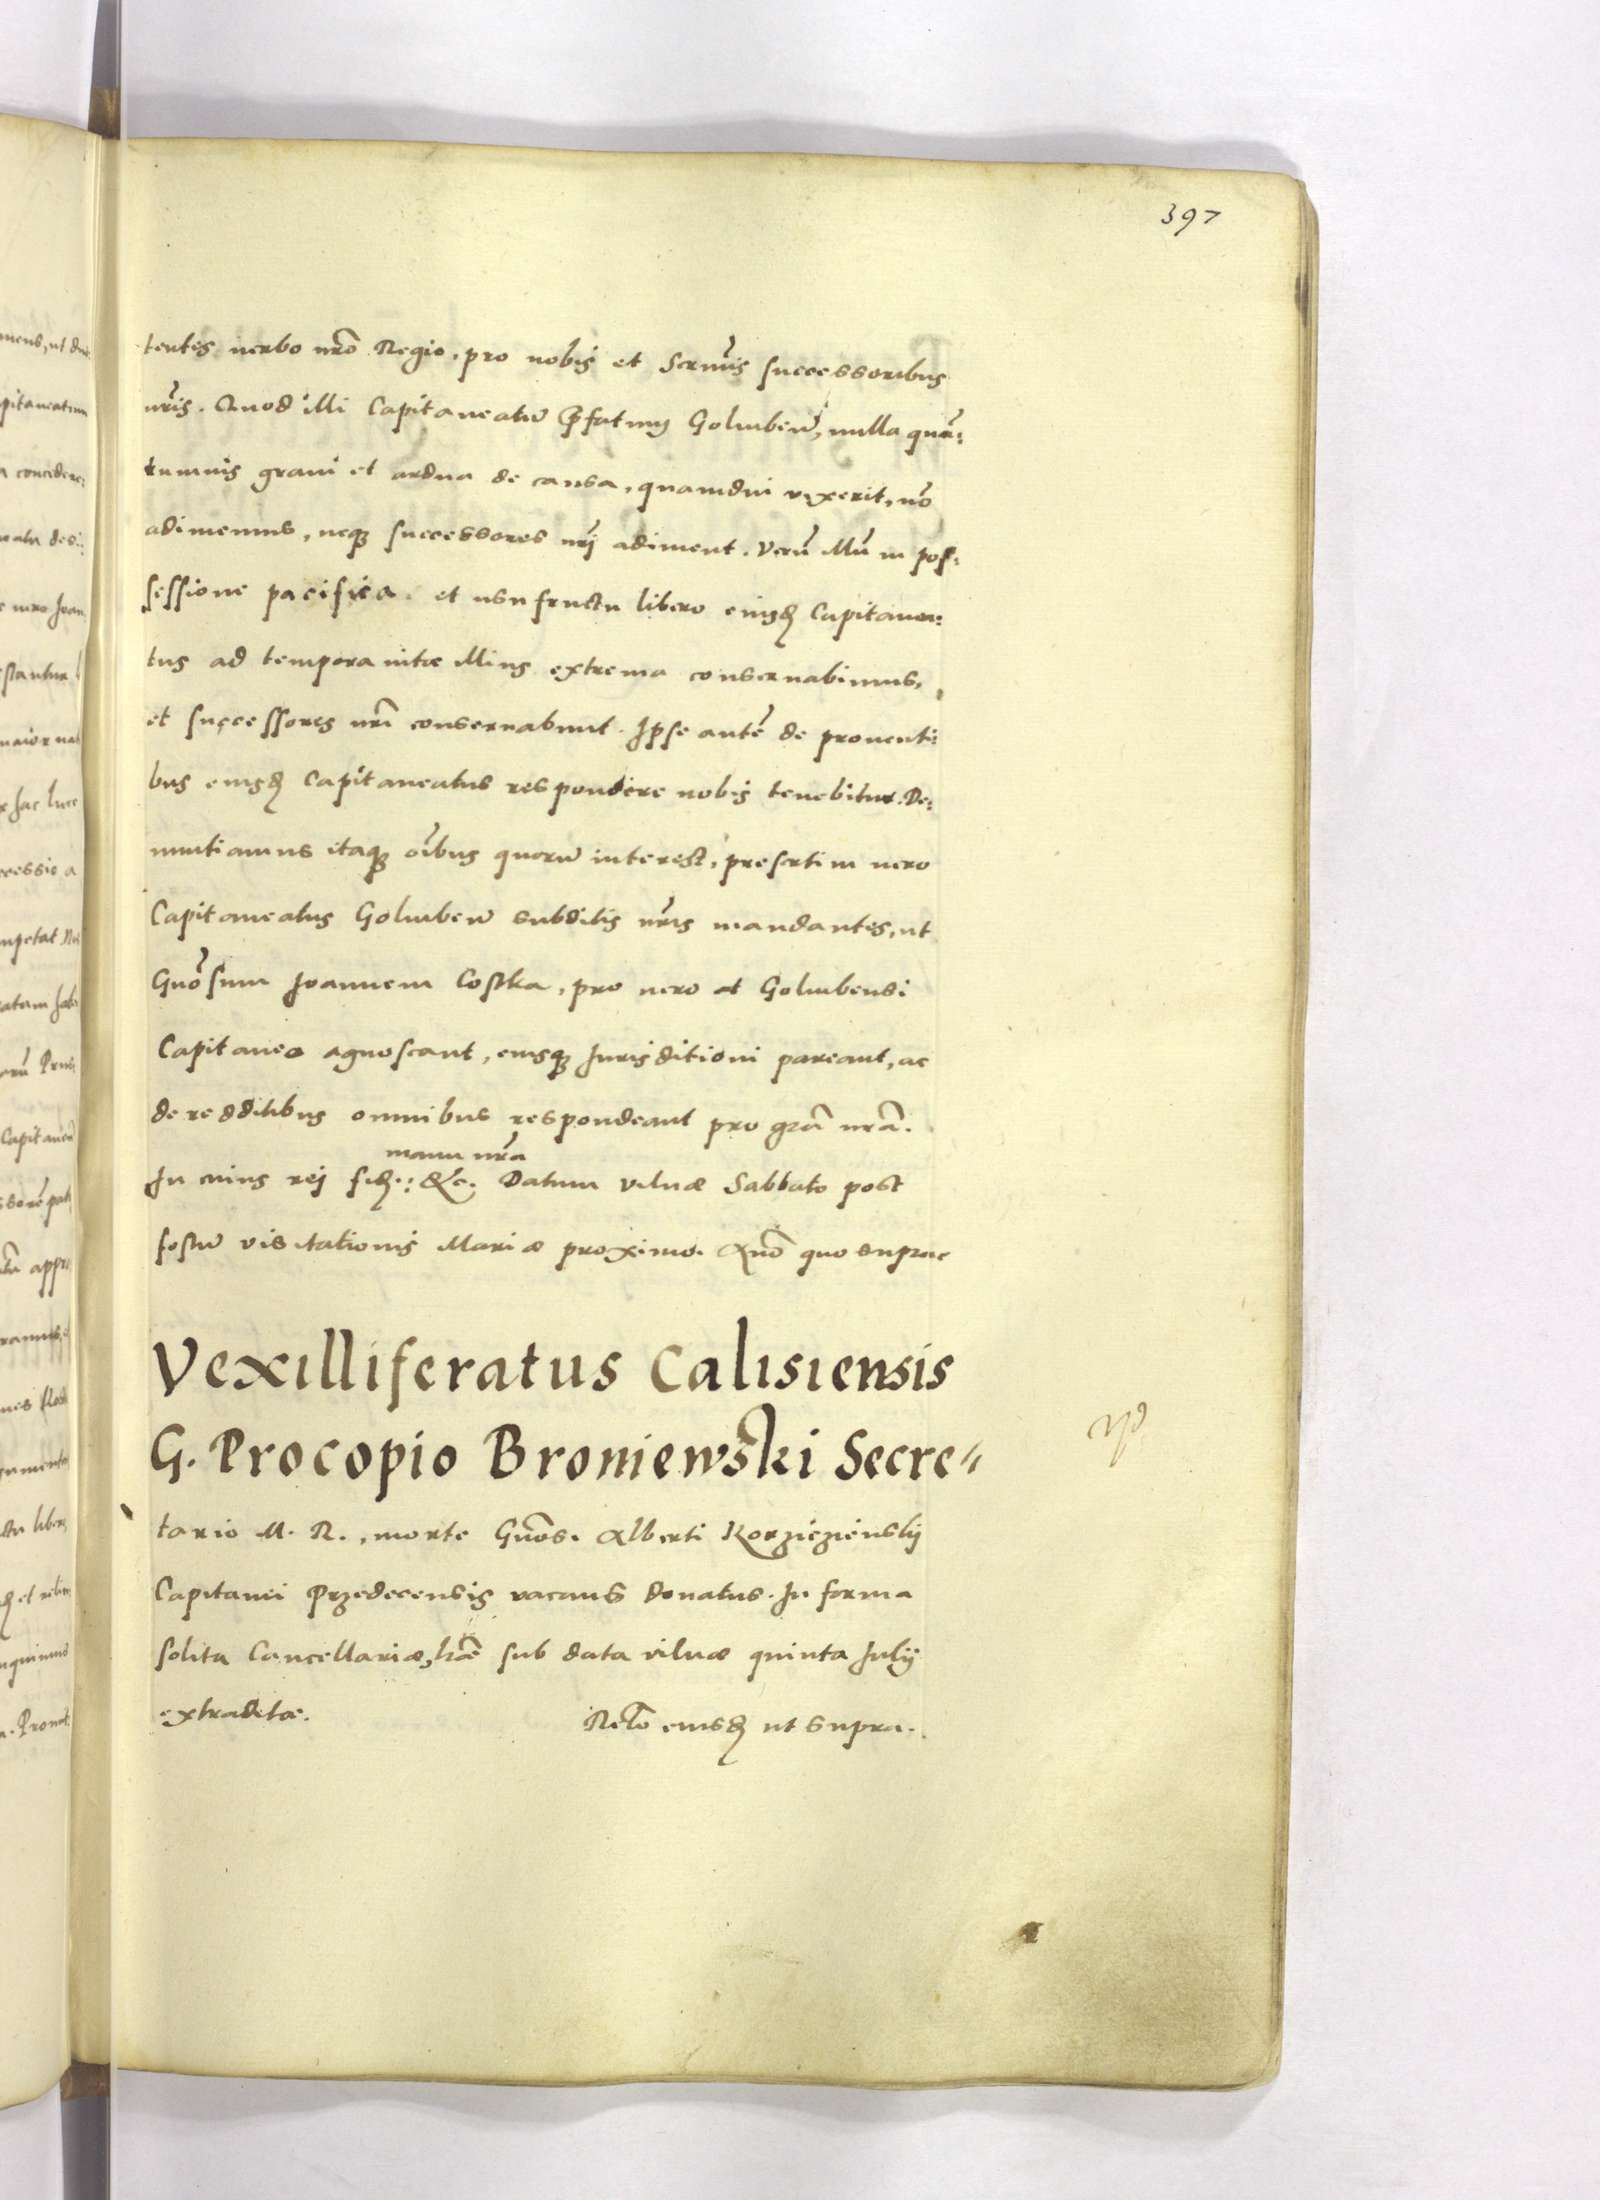 397
tentes verbo nr̃o Regio, pro nobis et Seren̄is successoribus
nr̃is. Quod illi Capitaneatũ p̃fatum Golubeñ, nulla quan:
tumvis gravi et ardua de causa, quamdiu vixerit, nõ
adimemus, neq₃ successores nr̃i adiment. Verũ illũ in pos:
sessione pacifica. et usufructu libero eiusḏ Capitanea:
tus ad tempora vitæ illius extrema conservabimus,
et successores nr̃i conservabunt. Ipse autẽ de proventi:
bus eiusḏ Capitaneatus respondere nobis tenebitur. De:
nuntiamus itaq₃ oĩbus quorũ interest, presertim vero
Capitaneatus Golubeñ subditis nr̃is mandantes, ut
Gnõsum Joannem Costka, pro vero et Golubensi
Capitaneo agnoscant, eiusq₃ Jurisditioni pareant, ac
de redditibus omnibus respondeant pro gr̃a nr̃a.
manu nr̃a
In cuius rej fiḏ: &c. Datum Vilnæ Sabbato post
festũ visitationis Mariæ proximo. Anño quo supra
Vexilliferatus Calisiensis
G. Procopio Broniewski Secre"
tario M. R., morte Gnõs. Alberti Korzieziensky
Capitanei Przedecensis vacans donatus. In forma
solita Cancellariæ, lr̃æ sub data Vilnæ quinta Julij
extraditæ.
Relõ eiusḏ ut supra.